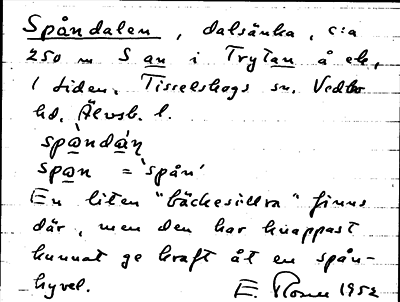 Spåndalen, dalsänka, c:a
250 m S an i Trytan å ek.
1 tiden. Tisselskogs sn. Vedbo
hd. Älvsb. l.
spɑ̀ndɑ̀ṇ
spɑn = 'spån'
En liten "bäckesillra" finns
där, men den har knappast
kunnat ge kraft åt en spån-
hyvel.
E. 1952